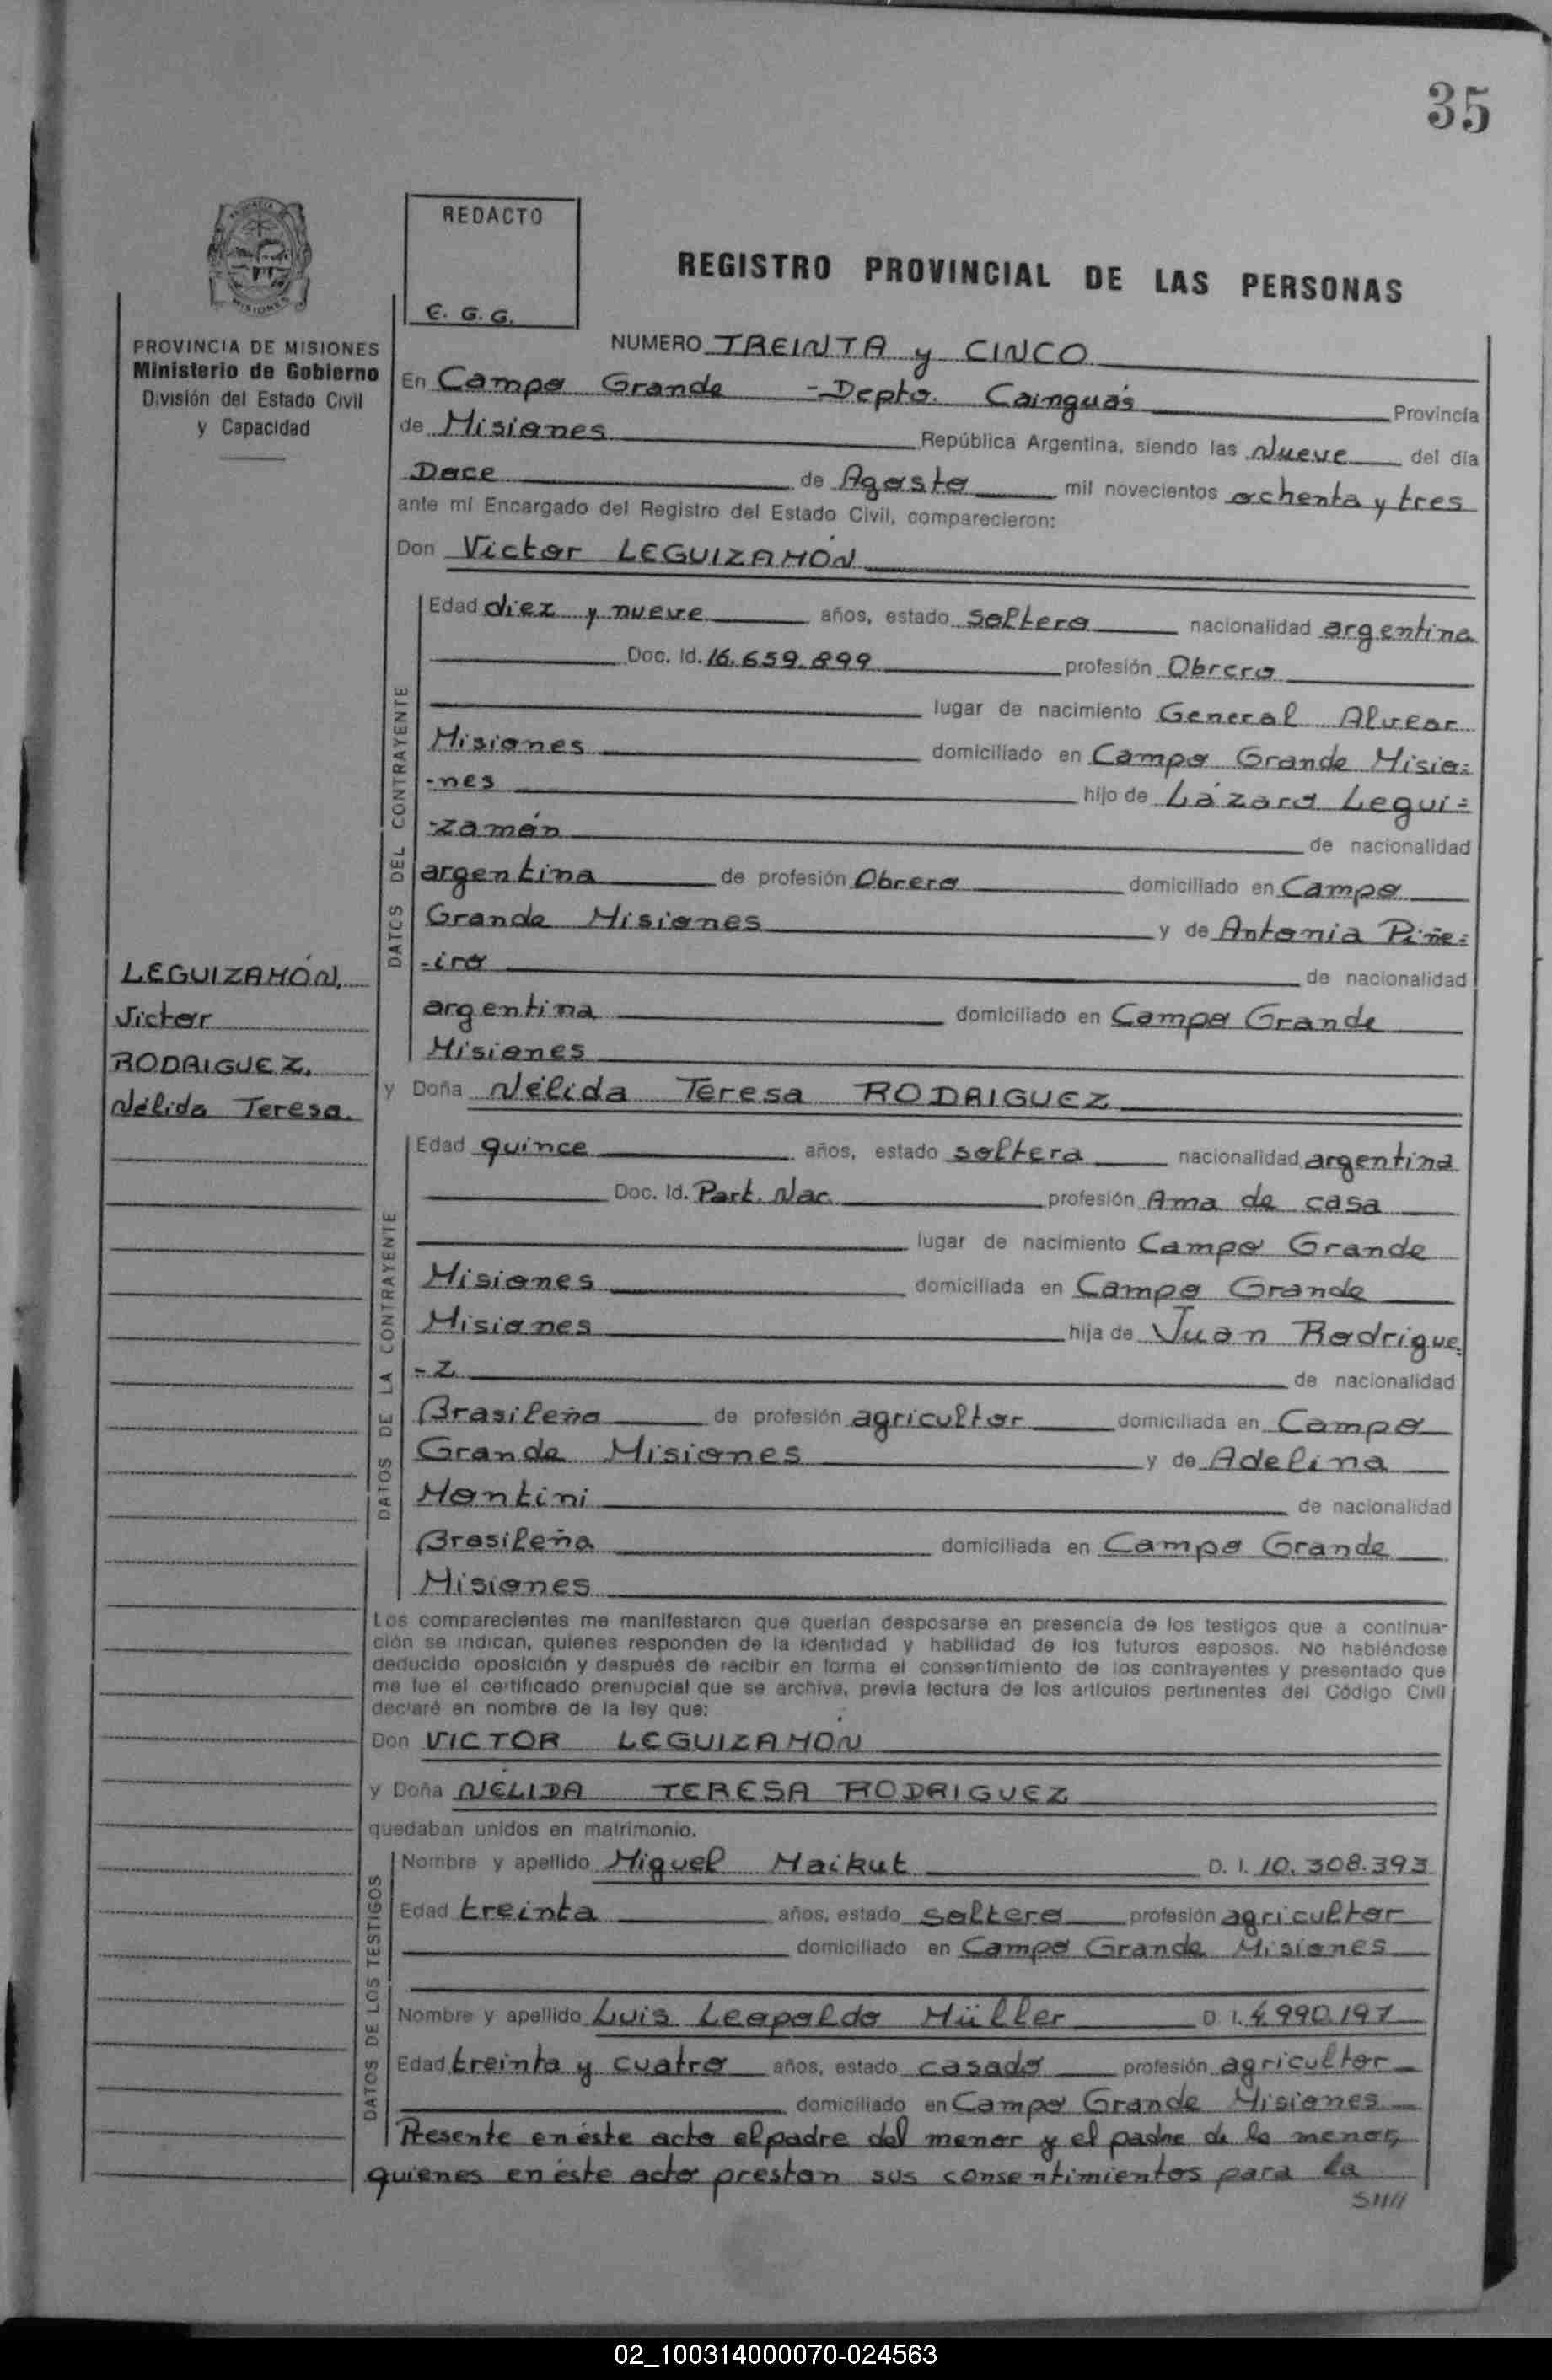 35
REDACTO
E. G. G.
REGISTRO PROVINCIAL DE LAS PERSONAS
PROVINCIA DE MISIONES
Ministerio de Gobierno
División del Estado Civil
y Capacidad
NUMERO TREINTA y CINCO
En Campo Grande -Depto. Cainguás Provincia
de Misiones República Argentina, siendo las Nueve del día
Doce de Agosto mil novecientos ochenta y tres
ante mí Encargado del Registro del Estado Civil, comparecieron:
Don Víctor LEGUIZAMÓN
DATOS DEL CONTRAYENTE
Edad diez y nueve años, estado soltero nacionalidad argentina
Doc. Id. 16.659.899 profesión Obrero
lugar de nacimiento General Alvear
Misiones domiciliado en Campo Grande Misio=
-nes hijo de Lázaro Legui=
-zamón de nacionalidad
argentina de profesión Obrero domiciliado en Campo
Grande Misiones y de Antonia Piñe=
-iro de nacionalidad
argentina domiciliado en Campo Grande
Misiones
LEGUIZAMÓN,
Víctor
RODRIGUEZ,
Nélida Teresa.
y Doña Nélida Teresa RODRIGUEZ
DATOS DE LA CONTRAYENTE
Edad quince años, estado soltera nacionalidad argentina
Doc. Id. Part. Nac. profesión Ama de casa
lugar de nacimiento Campo Grande
Misiones domiciliada en Campo Grande
Misiones hija de Juan Rodrigue=
-z de nacionalidad
Brasileña de profesión agricultor domiciliada en Campo
Grande Misiones y de Adelina
Montini de nacionalidad
Brasileña domiciliada en Campo Grande
Misiones
Los comparecientes me manifestaron que querían desposarse en presencia de los testigos que a continua-
ción se indican, quienes responden de la identidad y habilidad de los futuros esposos. No habiéndose
deducido oposición y después de recibir en forma el consentimiento de los contrayentes y presentado que
me fue el certificado prenupcial que se archiva, previa lectura de los artículos pertinentes del Código Civil
declaré en nombre de la ley que:
Don VICTOR LEGUIZAMÓN
y Doña NÉLIDA TERESA RODRIGUEZ
quedaban unidos en matrimonio.
DATOS DE LOS TESTIGOS
Nombre y apellido Miguel Maikut D. I. 10.308.393
Edad treinta años, estado soltero profesión agricultor
domiciliado en Campo Grande Misiones
Nombre y apellido Luis Leopoldo Müller D. I. 4.990.197
Edad treinta y cuatro años, estado casado profesión agricultor
domiciliado en Campo Grande Misiones
Presente en éste acto el padre del menor y el padre de la menor,
quienes en éste acto prestan sus consentimientos para la
02_100314000070-024563